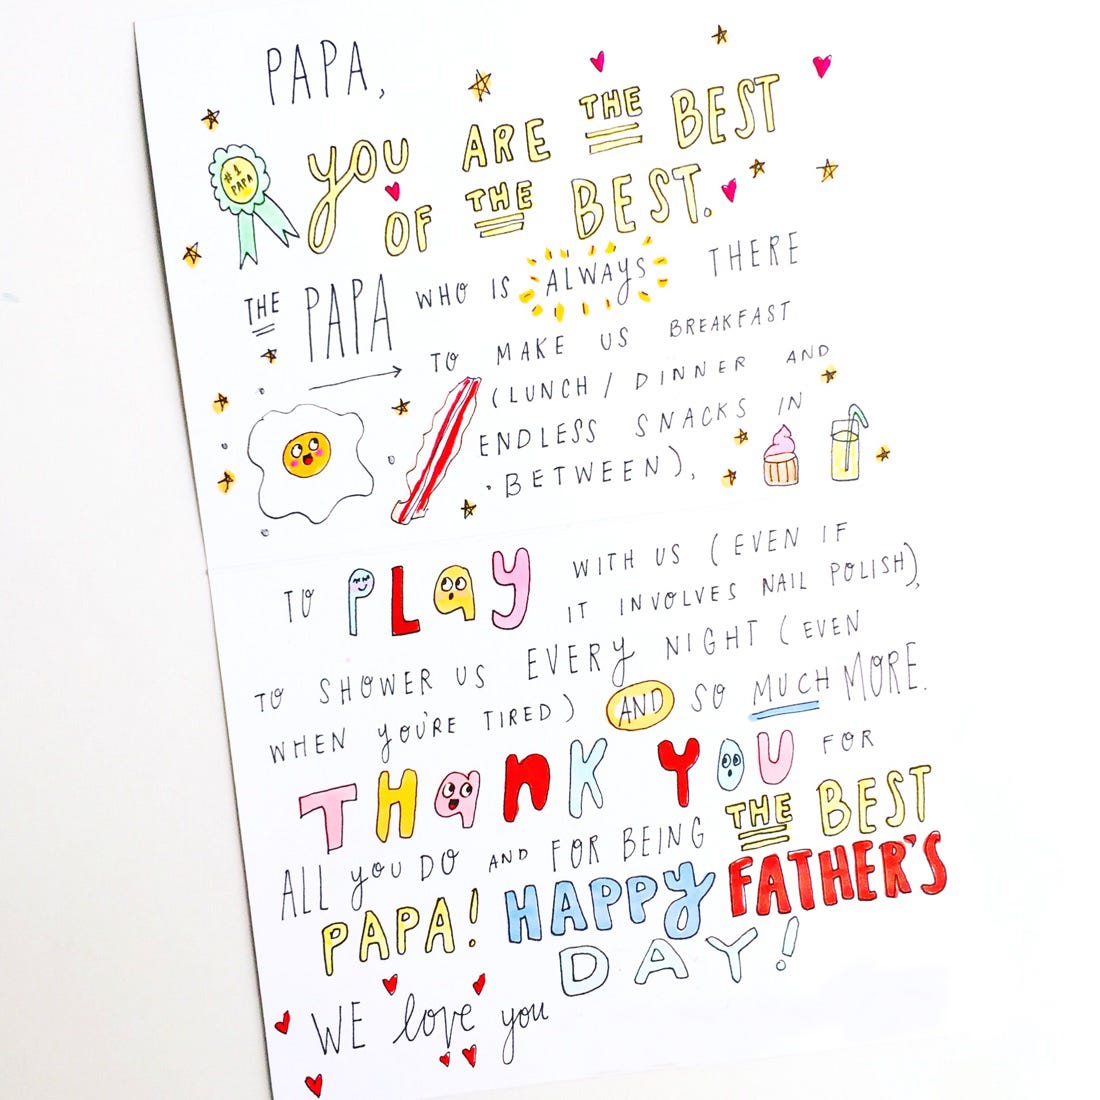 PAPA,
#1
PAPA
YOU ARE THE BEST
OF THE BEST.
THE PAPA WHO IS ALWAYS THERE
TO MAKE US BREAKFAST
(LUNCH / DINNER AND
ENDLESS SNACKS IN
BETWEEN),
TO PLAY WITH US (EVEN IF
IT INVOLVES NAIL POLISH),
TO SHOWER US EVERY NIGHT (EVEN
WHEN YOU'RE TIRED) AND SO MUCH MORE.
THANK YOU FOR
ALL YOU DO AND FOR BEING THE BEST
PAPA! HAPPY FATHER'S
DAY!
WE love you